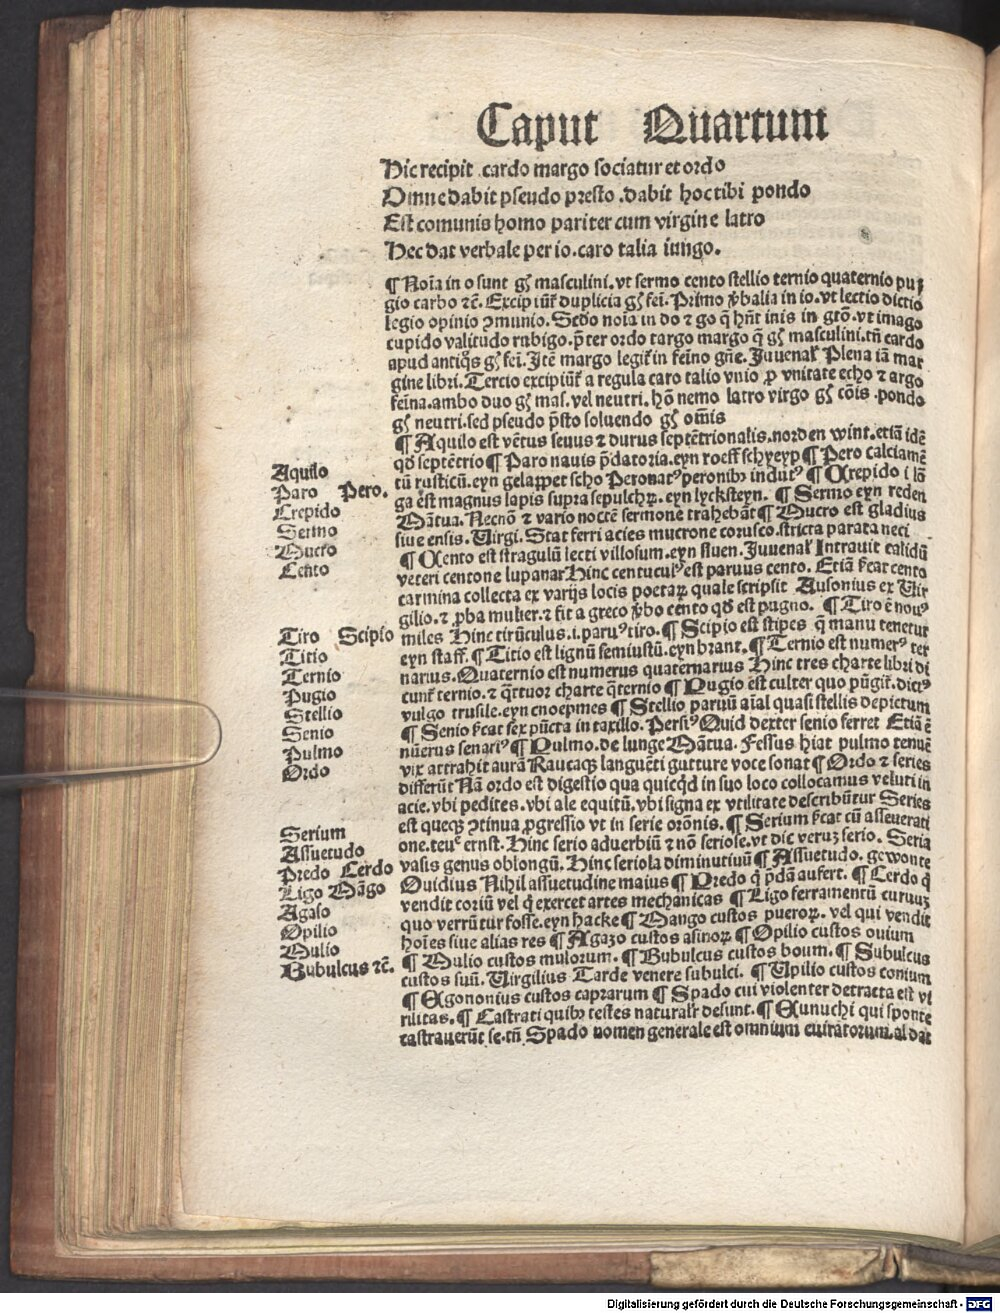 Caput Quartum
Hic recipit cardo margo sociatur et ordo
Omne dabit pseudo presto .dabit hoc tibi pondo
Est comunis homo pariter cum virgine latro
Hec dat verbale per io. caro talia iungo.
¶ Noīa in o sunt gꝭ masculini. vt sermo cento stellio ternio quaternio pu⸗
gio carbo ⁊c̄. Excipiūt̉ duplicia gꝭ fei. Primo v̓balia in io. vt lectio dictio
legio opinio ꝯmunio. Scdo noīa in do ⁊ go q̄ hn̄t inis in gtō. vt imago
cupido valitudo rubigo. p̄ter ordo targo margo q̄ gꝭ masculini. tn̄ cardo
apud antiq̄s gꝭ fei. Itē margo legit̉ in feīno gn̄e. Juuenal̓ Plena iā mar
gine libri. Tercio excipiūt̉ a regula caro talio vnio ꝓ vnitate echo ⁊ argo
feīna. ambo duo gꝭ mas. vel neutri. hō nemo latro virgo gꝭ cōis .pondo
gꝭ neutri. sed pseudo p̄sto soluendo gꝭ om̄is
¶ Aquilo est vētus seuus ⁊ durus septētrionalis. norden wint. etiā idē
Aquilo
qd̄ septētrio ¶ Paro nauis p̄datoria. eyn roeff schyeyp ¶ Pero calciamē
Paro Pero.
tū rusticū. eyn gelappet scho Peronatꝰ peronibꝫ indutꝰ ¶ Crepido i lō
Crepido
ga est magnus lapis supra sepulchꝝ. eyn lycksteyn. ¶ Sermo eyn reden
Sermo
Mātua. Necnō ⁊ vario noctē sermone trahebāt ¶ Mucro est gladius
Mucro
siue ensis. Uirgi. Stat ferri acies mucrone corusco. stricta parata neci
Cento
¶ Cento est stragulū lecti villosum. eyn sluen. Juuenal̓ Intrauit calidū
veteri centone lupanar Hinc centuculꝰ est paruus cento. Etiā s̄cat cento
carmina collecta ex varijs locis poetaꝝ quale scripsit Ausonius ex Uir
gilio. ⁊ ꝓba mulier. ⁊ fit a greco v̓bo cento qd̄ est pugno. ¶ Tiro ē nouꝰ
Tiro Scipio
miles Hinc tirūculus .i. paruꝰ tiro. ¶ Scipio est stipes q̄ manu tenetur
Titio
eyn staff. ¶ Titio est lignū semiustū. eyn brant. ¶ Ternio est numerꝰ ter
Ternio
narius. Quaternio est numerus quaternarius Hinc tres charte libri di
Pugio
cunt̉ ternio. ⁊ q̄ttuor charte q̄ternio ¶ Pugio est culter quo pūgit̉. dictꝰ
Stellio
vulgo trusile. eyn cnoepmes ¶ Stellio paruū aīal quasi stellis depictum
Senio
¶ Senio s̄cat sex pūcta in taxillo. Persiꝰ Quid dexter senio ferret Etiā ē
Pulmo
nūerus senariꝰ ¶ Pulmo. de lunge Mātua. Fessus hiat pulmo tenuē
Ordo
vix attrahit aurā Raucaqꝫ languēti gutture voce sonat ¶ Ordo ⁊ series
differūt Nā ordo est digestio qua quicqd̄ in suo loco collocamus veluti in
acie. vbi pedites. vbi ale equitū. vbi signa ex vtilitate describūtur Series
Serium
est queqꝫ ꝯtinua ꝓgressio vt in serie orōnis. ¶ Serium s̄cat cū asseuerati
Assuetudo
one. teuͤ ernst. Hinc serio aduerbiū ⁊ nō seriose. vt dic veruꝫ serio. Seria
Predo Cerdo
vasis genus oblongū. Hinc seriola diminutiuū ¶ Assuetudo. gewonte
Ligo Māgo
Ouidius Nihil assuetudine maius ¶ Predo q̄ p̄dā aufert. ¶ Cerdo q̄
Agaso
vendit coriū vel q̄ exercet artes mechanicas ¶ Ligo ferramentū curuuꝫ
Opilio
quo verrūtur fosse. eyn hacke ¶ Mango custos pueroꝝ. vel qui vendit
Mulio
hoīes siue alias res ¶ Agazo custos asinoꝝ ¶ Opilio custos ouium
Bubulcus ⁊c̄.
¶ Mulio custos mulorum. ¶ Bubulcus custos boum. ¶ Subulcus
custos suū. Uirgilius Tarde venere subulci. ¶ Upilio custos conium
¶ Egononius custos caprarum ¶ Spado cui violenter detracta est vi
rilitas. ¶ Castrati quibꝫ testes natural̓r desunt. ¶ Eunuchi qui sponte
castrauerūt se. tn̄ Spado nomen generale est omnium euiratorum. al dat
Digitalisierung gefördert durch die Deutsche Forschungsgemeinschaft - DFG